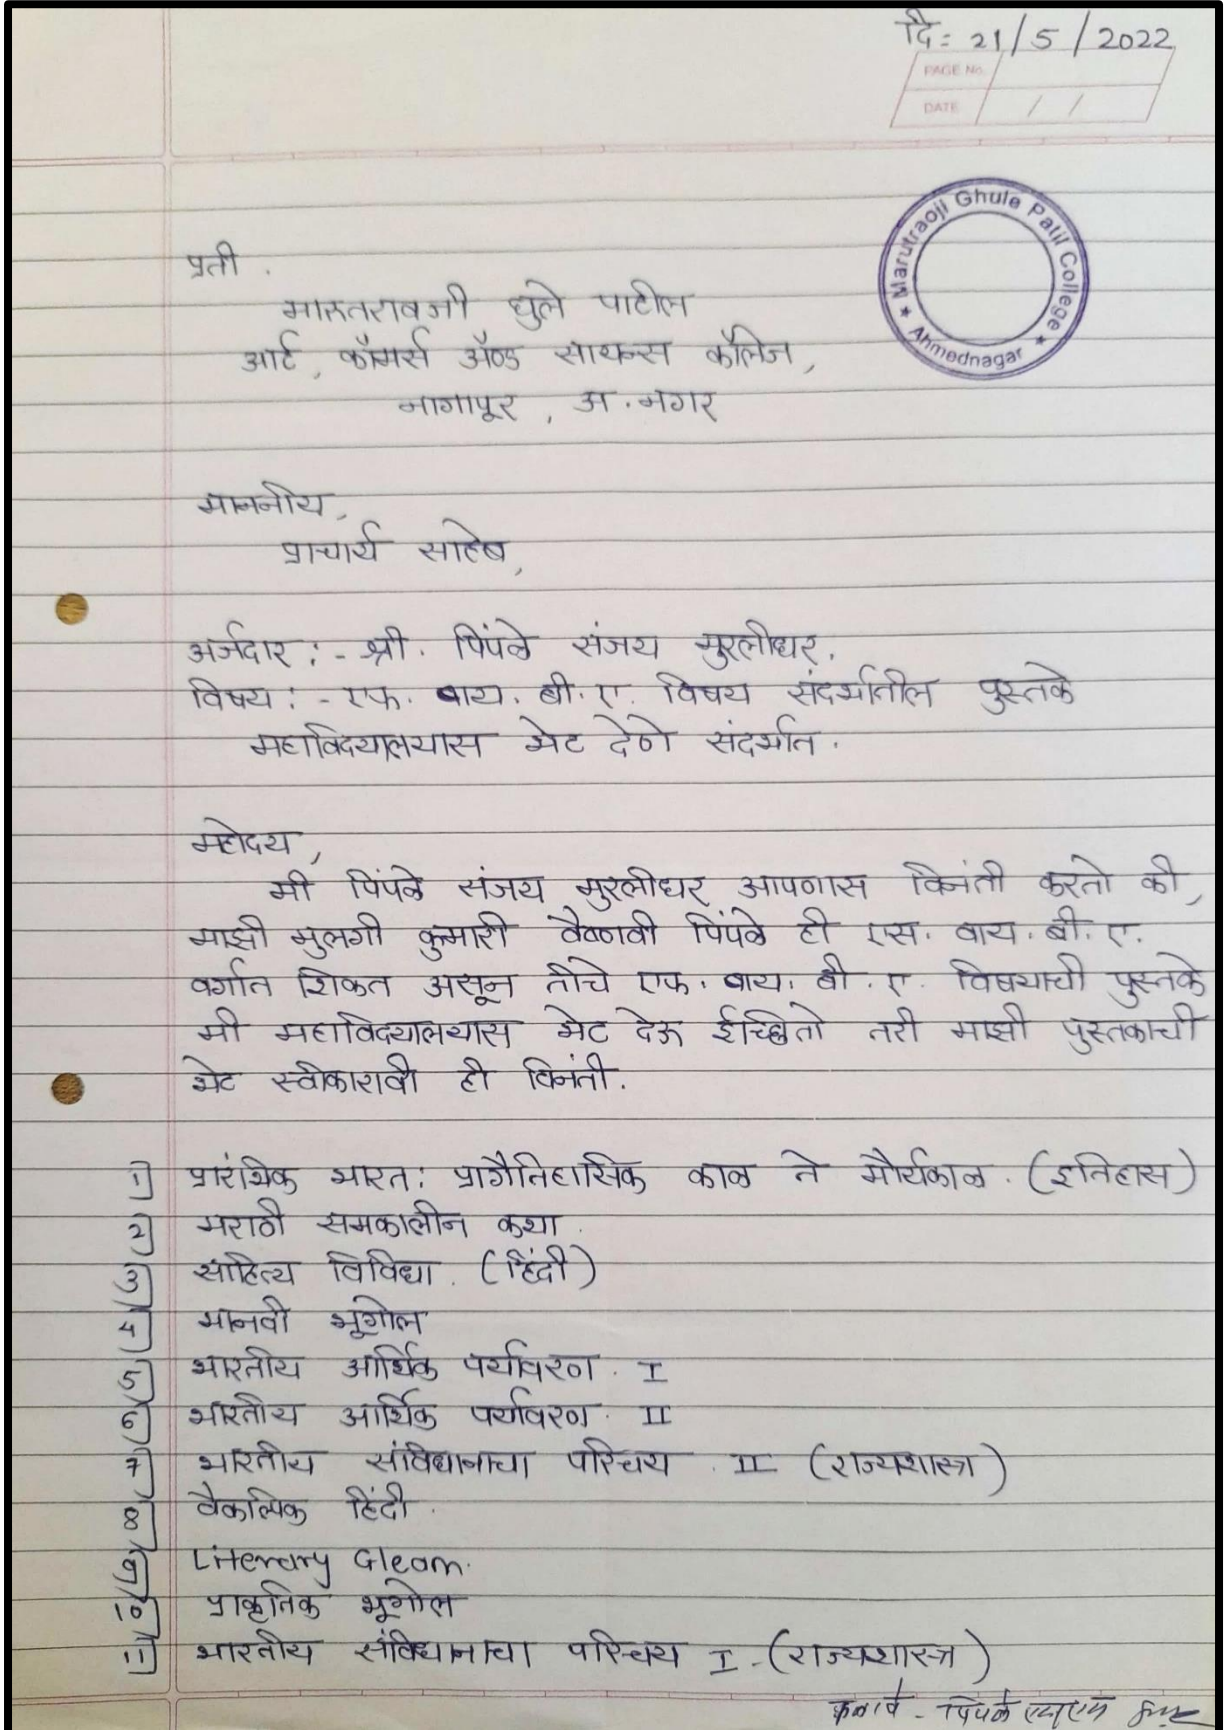 दि= 21/5/2022
PAGE No.
DATE / /
Marutraoji Ghule Patil College
Ahmednagar
प्रती.
मारुतरावजी घुले पाटील
आर्ट, कॉमर्स ॲण्ड सायन्स कॉलेज,
नागापूर, अ.नगर
माननीय,
प्राचार्य साहेब,
अर्जदार :- श्री. पिंपळे संजय मुरलीधर.
विषय :- एफ. वाय. बी. ए. विषय संदर्भातील पुस्तके
महाविद्यालयास भेट देणे संदर्भात.
महोदय,
मी पिंपळे संजय मुरलीधर आपणास विनंती करतो की,
माझी मुलगी कुमारी वैष्णवी पिंपळे ही एस. वाय. बी. ए.
वर्गात शिकत असून तीचे एफ. वाय. बी. ए. विषयाची पुस्तके
मी महाविद्यालयास भेट देऊ ईच्छितो तरी माझी पुस्तकाची
भेट स्वीकारावी ही विनंती.
1) प्रारंभिक भारत: प्रागैतिहासिक काळ ते मौर्यकाळ. (इतिहास)
2) मराठी समकालीन कथा.
3) साहित्य विविधा. (हिंदी)
4) मानवी भूगोल
5) भारतीय आर्थिक पर्यावरण. I
6) भारतीय आर्थिक पर्यावरण. II
7) भारतीय संविधानाचा परिचय. II (राज्यशास्त्र)
8) वैकल्पिक हिंदी.
9) Literary Gleam.
10) प्राकृतिक भूगोल
11) भारतीय संविधानाचा परिचय I - (राज्यशास्त्र)
कळावे - पिंपळे एस एम